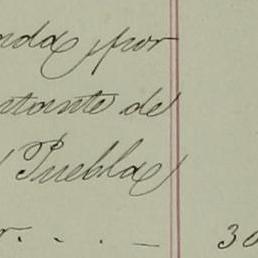 nda por
ntante de
Puebla
r. . . . — 30